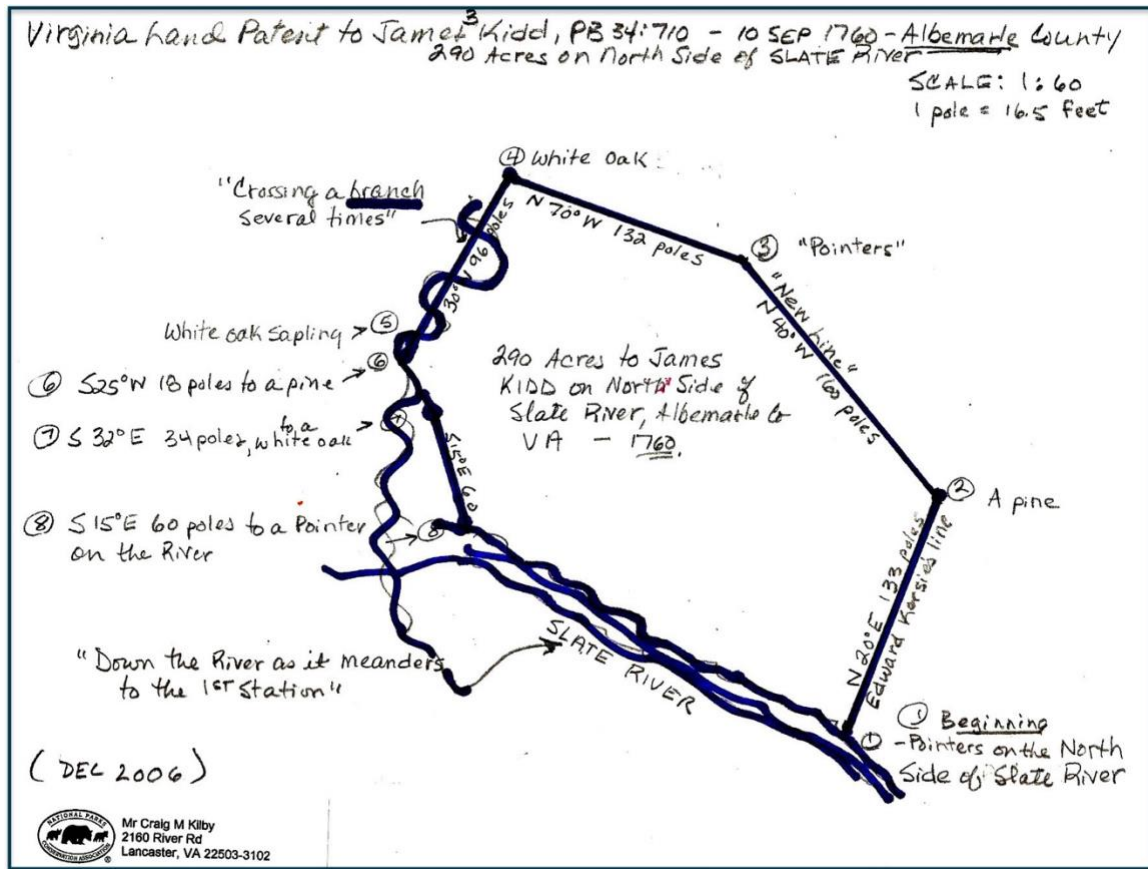 Virginia Land Patent to James³ Kidd, PB 34:710 - 10 SEP 1760 - Albemarle County
290 Acres on North Side of SLATE River
SCALE: 1:60
1 pole = 16.5 feet
④ White Oak
"Crossing a branch
several times"
N 70° W 132 poles
③ "Pointers"
"New Line"
N 40° W 160 poles
30° W 96 poles
White oak sapling > ⑤
⑥
⑥ S25°W 18 poles to a pine
⑦ S 32°E 34 poles, to a white oak
290 Acres to James
KIDD on North Side of
Slate River, Albemarle Co
VA - 1760.
S15°E 60
② A pine
⑧ S 15°E 60 poles to a Pointer
on the River
⑧
N 20° E 133 poles
Edward Kersie's line
SLATE RIVER
"Down the River as it meanders
to the 1ST Station"
① Beginning
-Pointers on the North
Side of Slate River
①
(DEC 2006)
NATIONAL PARKS
CONSERVATION ASSOCIATION
®
Mr Craig M Kilby
2160 River Rd
Lancaster, VA 22503-3102